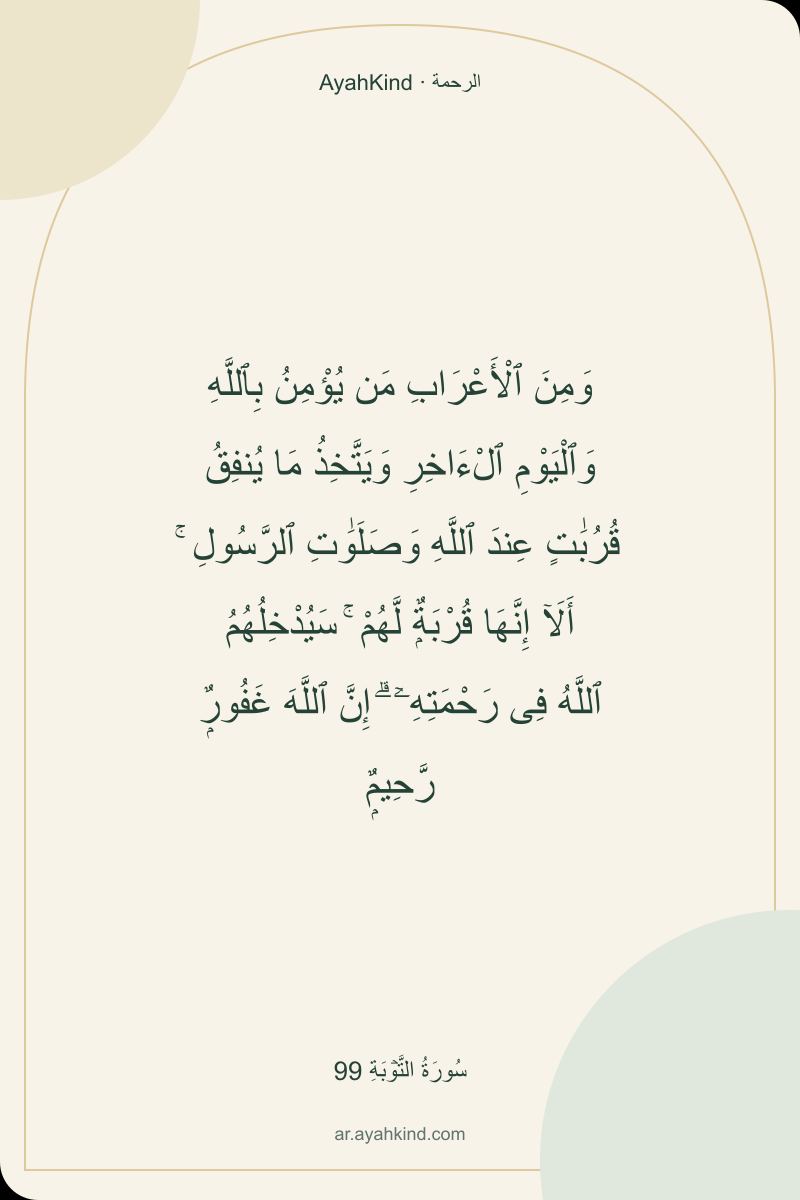 AyahKind · الرحمة
وَمِنَ ٱلْأَعْرَابِ مَن يُؤْمِنُ بِٱللَّهِ
وَٱلْيَوْمِ ٱلْءَاخِرِ وَيَتَّخِذُ مَا يُنفِقُ
قُرُبَٰتٍ عِندَ ٱللَّهِ وَصَلَوَٰتِ ٱلرَّسُولِ ۚ
أَلَآ إِنَّهَا قُرْبَةٌۭ لَّهُمْ ۚ سَيُدْخِلُهُمُ
ٱللَّهُ فِى رَحْمَتِهِۦٓ ۗ إِنَّ ٱللَّهَ غَفُورٌۭ
رَّحِيمٌۭ
سُورَةُ التَّوۡبَةِ 99
ar.ayahkind.com